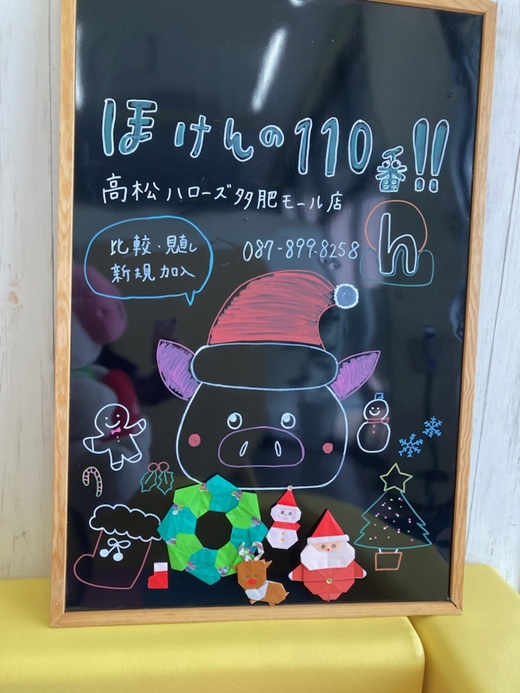 ほけんの110番!!
高松ハローズ多肥モール店
比較・見直し
新規加入
087-899-8258
h